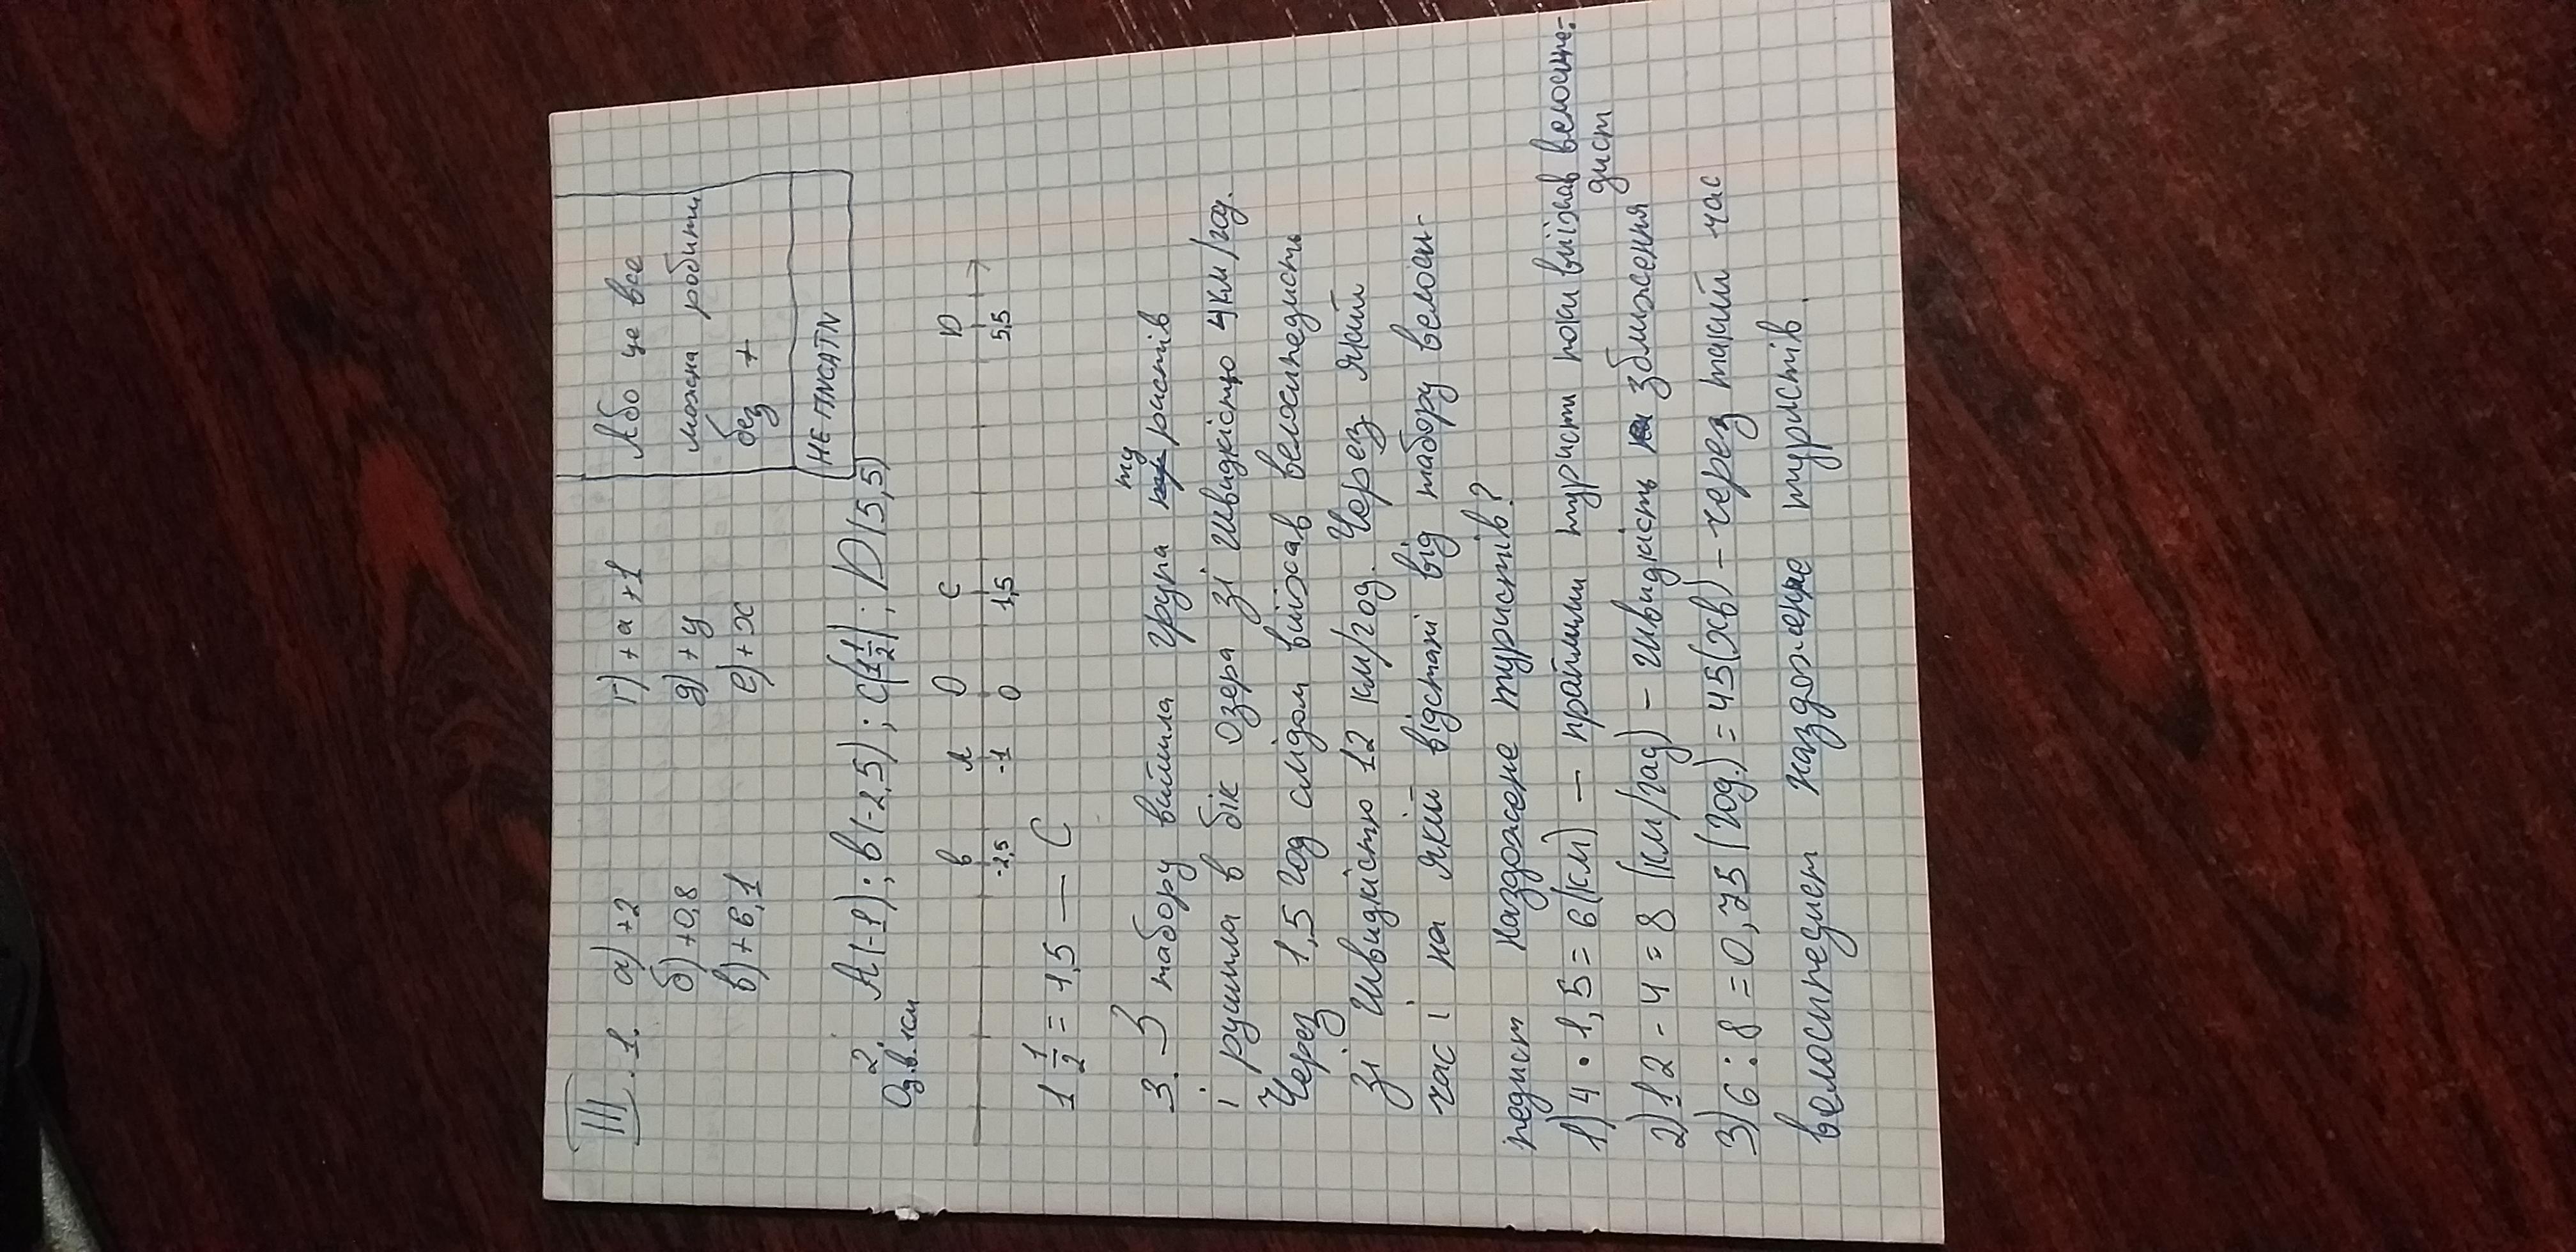 III. 1. а) +2 г) + а +1
б) +0,8 д) + у
в) +6,1 е) + х
Або це все
можна робити
без +
НЕ ПИСАТИ
2. А(-1); В(-2,5); С(1 1/2); D(5,5)
Од.в. 1см
В А О С D
-2,5 -1 0 1,5 5,5
1 1/2 = 1,5 — С
3. З табору вийшла група туристів
і рушила в бік озера зі швидкістю 4км/год.
Через 1,5 год слідом виїхав велосипедисть
зі швидкістю 12 км/год. Через який
час і на якій відстані від табору велоси-
педист наздожене туристів?
1) 4 · 1,5 = 6 (км) — праймили туристи поки виїзжав велосипе-
дист
2) 12 - 4 = 8 (км/год) — швидкість зближення
3) 6 : 8 = 0,75 (год.) = 45 (хв) — через такий час
велосипедист наздожене туристів.